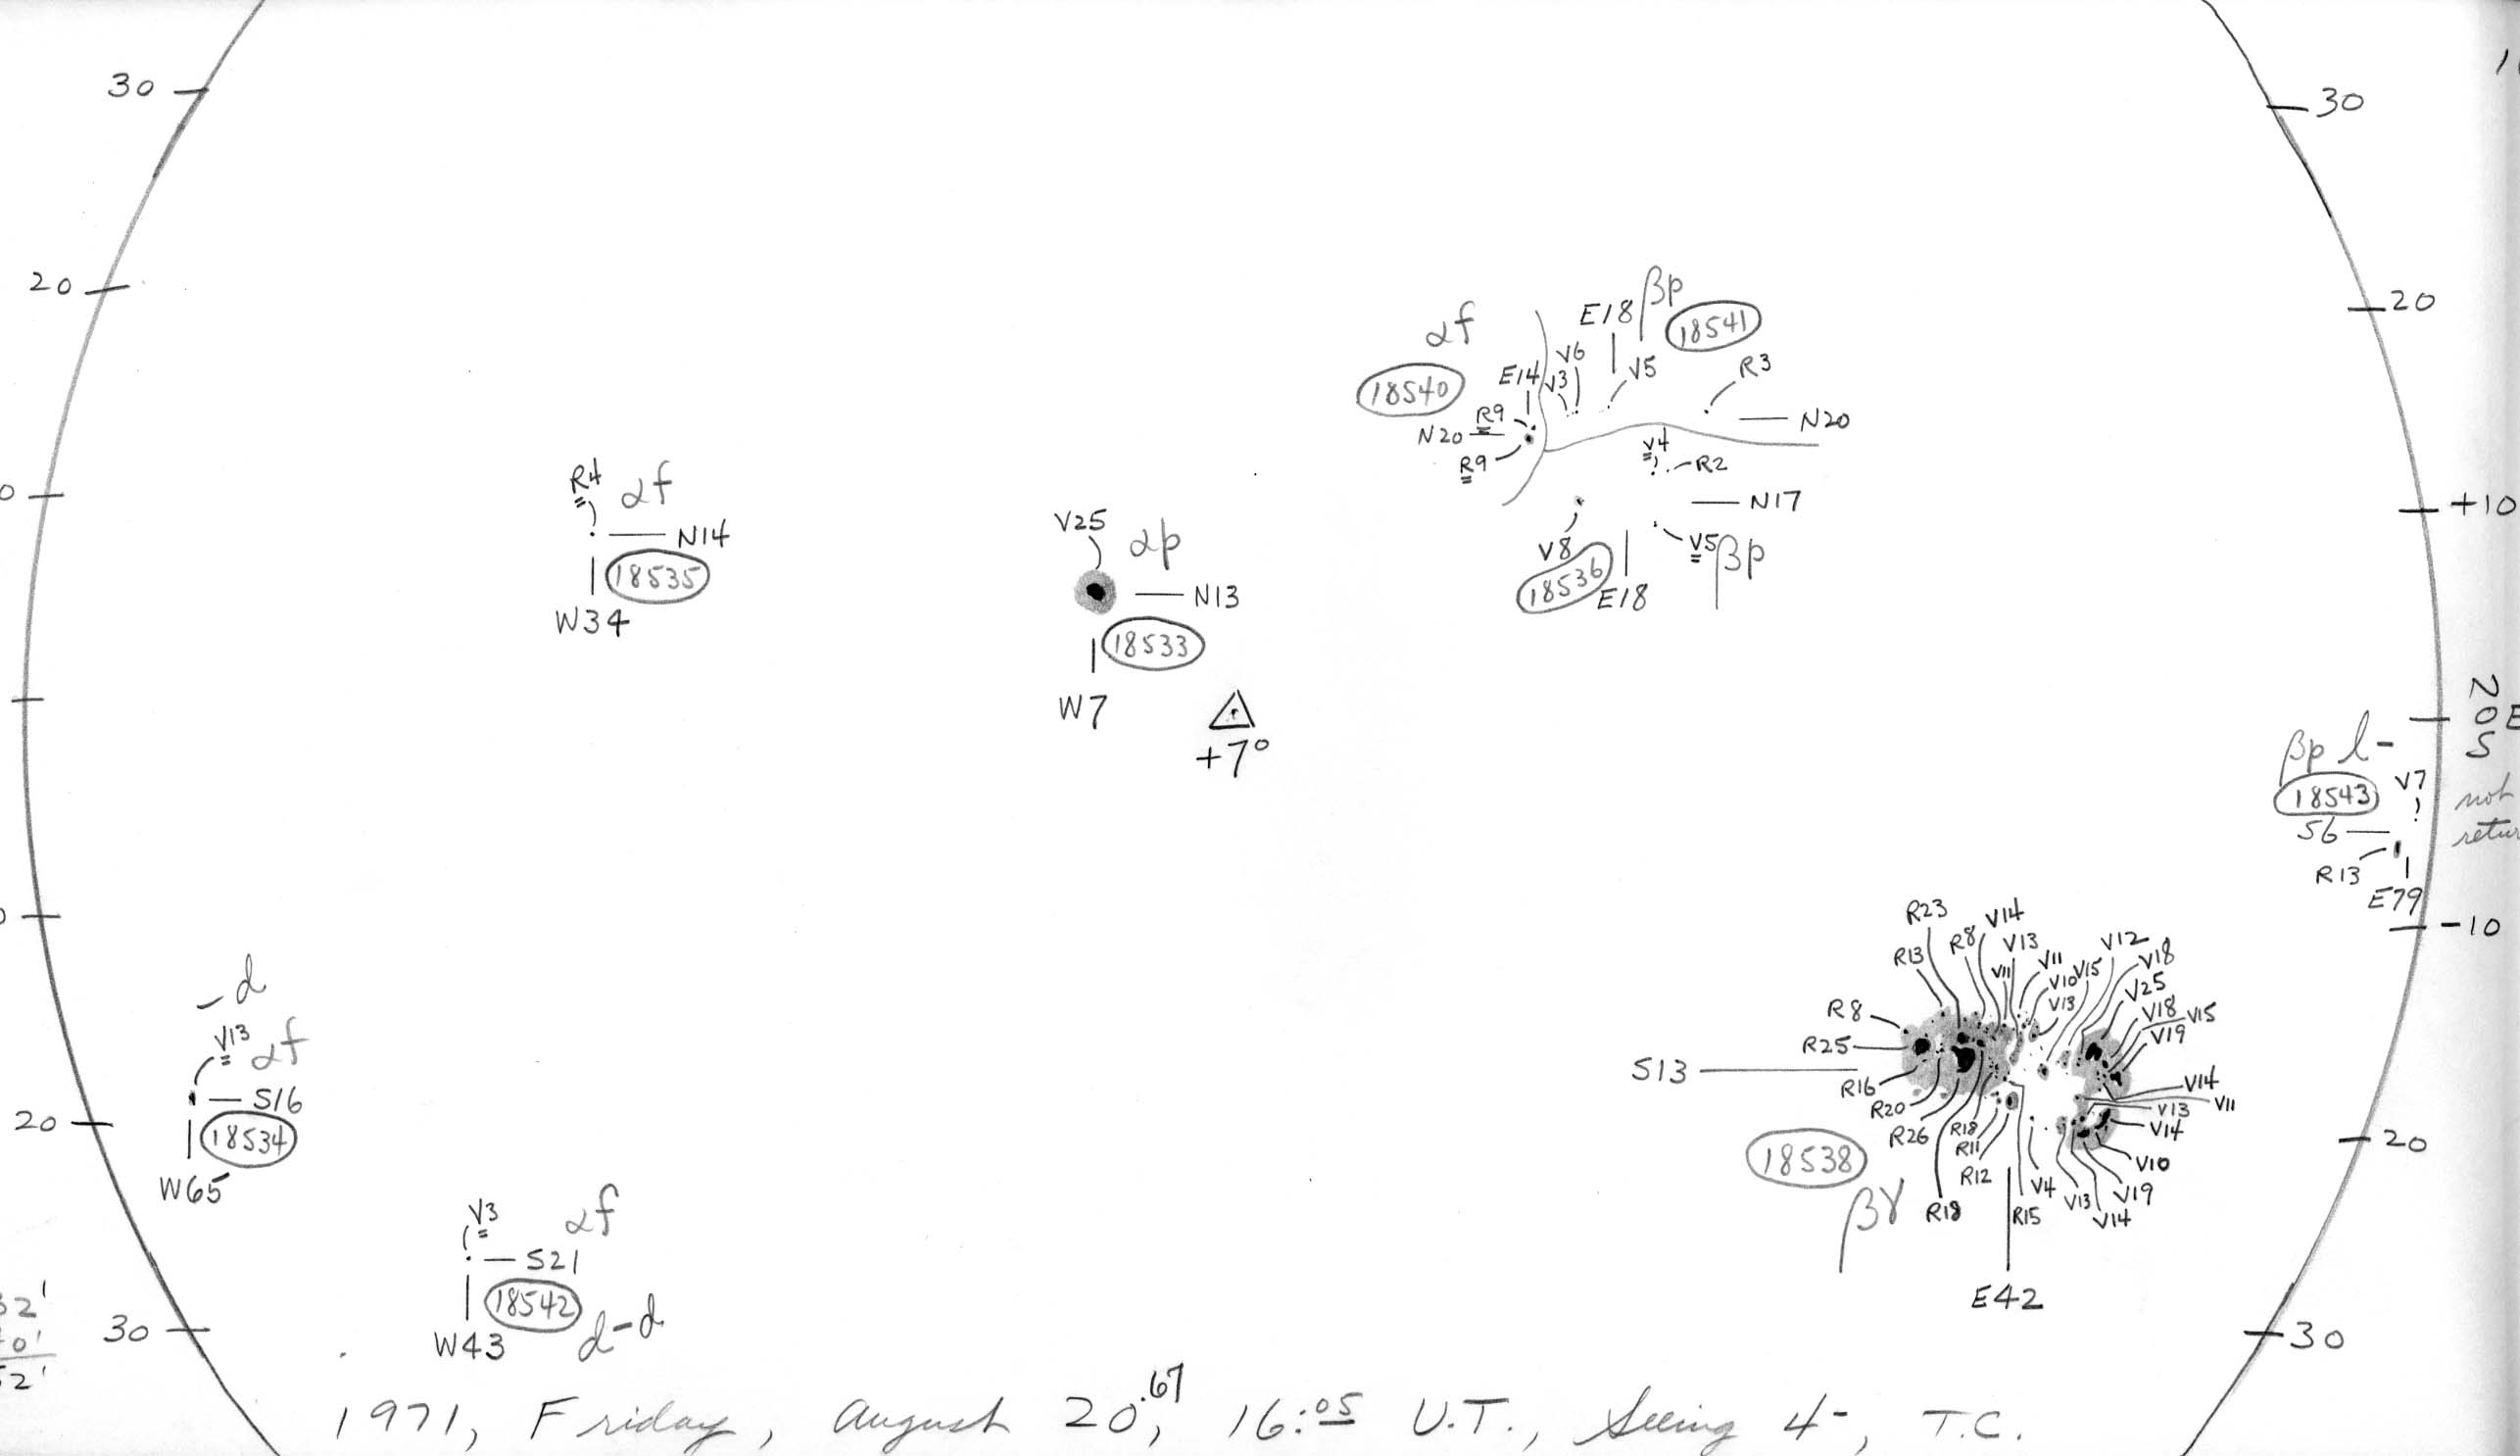 30
30
20
20
βp
E18
18541
αf
V6
R3
V5
E14
V3
18540
R9
N20
N20
V4
R9
R2
R4
αf
+10
N17
V25
αp
V8
V5
βp
N14
18535
18536
E18
N13
W34
18533
W7
+7°
βp l-
18543
V7
not
S6
R13
E79
-10
R23
V14
R8
V13
V12
R13
V11
V11
V15
V18
V10
V25
-d
V13
R8
V18
V15
V13
αf
V19
R25
S13
R16
V14
S16
R20
V11
V13
20
18534
R26
R18
V14
20
R11
18538
V10
W65
R12
V4
V19
V3
αf
βγ
R18
R15
V13
V14
S21
18542
E42
30
W43
d-d
30
1971, Friday, August 20.67, 16:05 U.T., Seeing 4-, T.C.